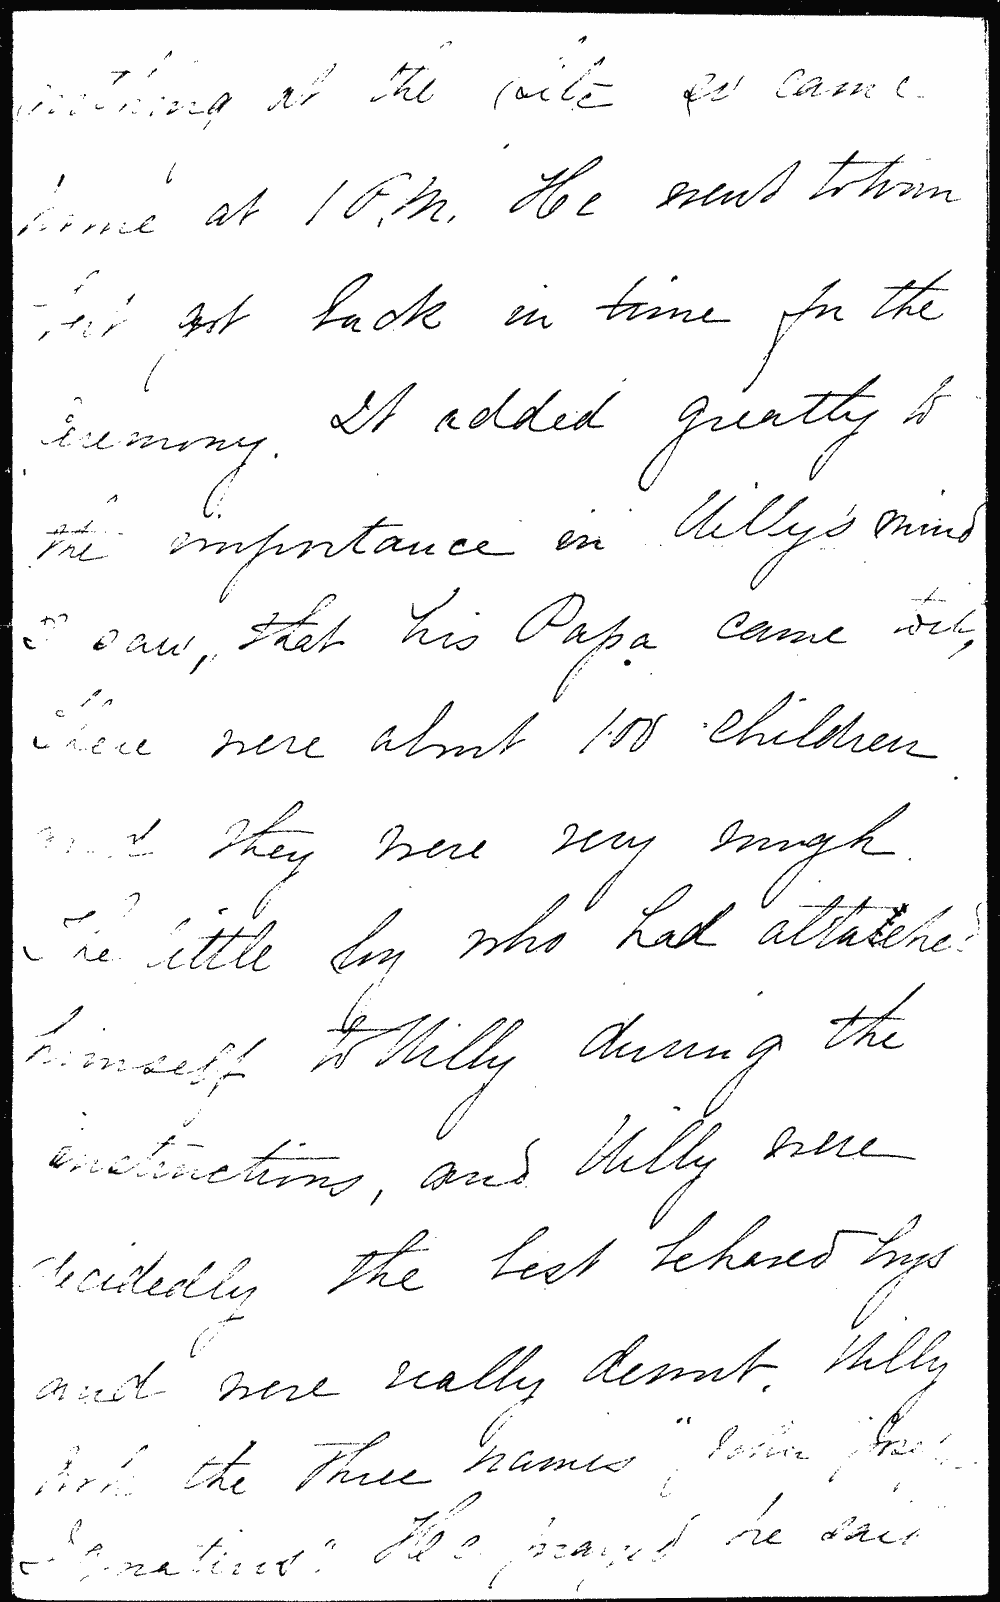 at the site so came
home at 1 P.M. He went to town
but got back in time for the
ceremony. It added greatly to
the importance in Willy's mind
I saw, that his Papa came too,
There were about 100 children
and they were very rough.
The little boy who had attatched
himself to Willy during the
instructions, and Willy were
decidedly the best behaved boys
and were really devout. Willy
took the three names "John Joseph
Ignatius". He prayed he said